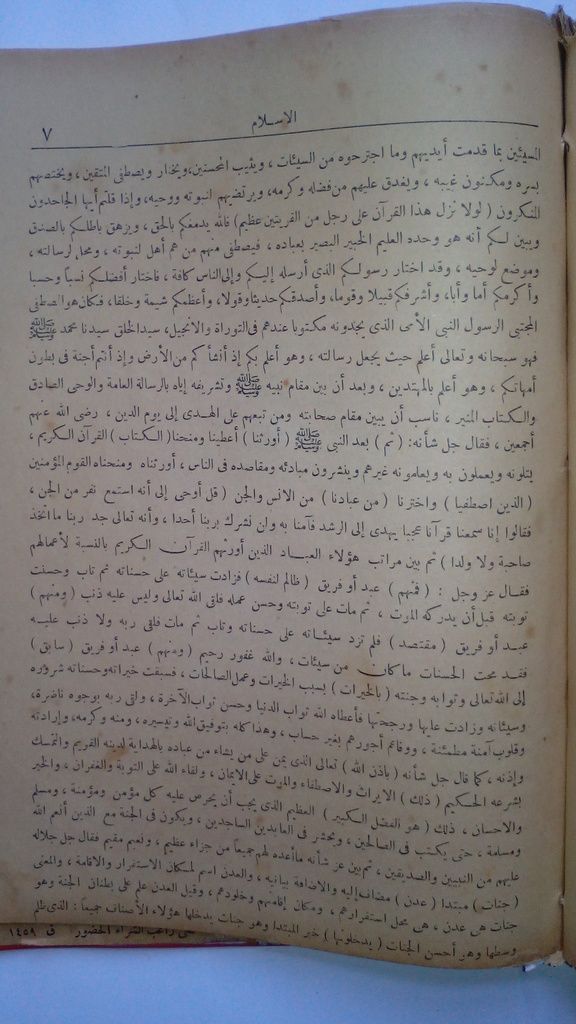 الاسلام
٧
المسيئين بما قدمت أيديهم وما اجترحوه من السيئات ، ويثيب المحسنين، ويختار ويصطفى المتقين ، ويختصهم
بسره ومكنون غيبه ، ويغدق عليهم من فضله وكرمه، ويرتضيهم لنبوته ووحيه، وإذا قلتم أيها الجاحدون
المنكرون ( لولا نزل هذا القرآن على رجل من القريتين عظيم) فالله يدمغكم بالحق ، ويزهق باطلكم بالصدق
ويبين لكم أنه هو وحده العليم الخبير البصير بعباده ، فيصطفى منهم من هم أهل لنبوته ، ومحل لرسالته ،
وموضع لوحيه ، وقد اختار رسولكم الذى أرسله إليكم وإلى الناس كافة ، فاختار أفضلكم نسباً وحسبا
وأكرمكم أما وأبا، وأشرفكم قبيلا وقوما، وأصدقكم حديثا وقولا، وأعظمكم شيمة وخلقا، فكان هو المصطفى
المجتبى الرسول النبى الأمى الذى يجدونه مكتوبا عندهم فى التوراة والانجيل، سيد الخلق سيدنا محمد ﷺ
فهو سبحانه وتعالى أعلم حيث يجعل رسالته ، وهو أعلم بكم إذ أنشأكم من الأرض وإذ أنتم أجنة فى بطون
أمهاتكم ، وهو أعلم بالمهتدين ، وبعد أن بين مقام نبيه ﷺ وتشريفه إياه بالرسالة العامة والوحى الصادق
والكتاب المنير ، ناسب أن يبين مقام صحابته ومن تبعهم على الهدى إلى يوم الدين ، رضى الله عنهم
أجمعين ، فقال جل شأنه: ( ثم ) بعد النبى ﷺ ( أورثنا ) أعطينا ومنحنا ( الكتاب ) القرآن الكريم ،
يتلونه ويعملون به ويعلمونه غيرهم وينشرون مبادئه ومقاصده فى الناس ، أورثناه ومنحناه القوم المؤمنين
( الذين اصطفينا ) واخترنا ( من عبادنا ) من الانس والجن ( قل أوحى إلى أنه استمع نفر من الجن ،
فقالوا إنا سمعنا قرآنا عجبا يهدى إلى الرشد فآمنا به ولن نشرك بربنا أحدا ، وأنه تعالى جد ربنا ما اتخذ
صاحبة ولا ولدا ) ثم بين مراتب هؤلاء العباد الذين أورثهم القرآن الكريم بالنسبة لأعمالهم
فقال عز وجل : ( فمنهم ) عبد أو فريق ( ظالم لنفسه ) فزادت سيئاته على حسناته ثم تاب وحسنت
توبته قبل أن يدركه الموت ، ثم مات على توبته وحسن عمله فلقى الله تعالى وليس عليه ذنب ( ومنهم )
عبد أو فريق ( مقتصد ) فلم تزد سيئاته على حسناته وتاب ثم مات فلقى ربه ولا ذنب عليه
فقد محت الحسنات ما كان من سيئات ، والله غفور رحيم ( ومنهم ) عبد أو فريق ( سابق )
إلى الله تعالى وثوابه وجنته ( بالخيرات ) بسبب الخيرات وعمل الصالحات ، فسبقت خيراته وحسناته شروره
وسيئاته وزادت عليها ورجحتها فأعطاه الله ثواب الدنيا وحسن ثواب الآخرة ، ولقى ربه بوجوه ناضرة،
وقلوب آمنة مطمئنة ، ووفاهم أجورهم بغير حساب ، وهذا كله بتوفيق الله وتيسيره ، ومنه وكرمه، وإرادته
وإذنه ، كما قال جل شأنه ( باذن الله ) تعالى الذى يمن على من يشاء من عباده بالهداية لدينه القويم والتمسك
بشرعه الحكيم ( ذلك ) الايراث والاصطفاء والموت على الايمان ، ولقاء الله على التوبة والغفران ، والخير
والاحسان ، ذلك ( هو الفضل الكبير ) العظيم الذى يجب أن يحرص عليه كل مؤمن ومؤمنة ، ومسلم
ومسلمة ، حتى يكتب فى الصالحين ، ويحشر فى العابدين الساجدين ، ويكون فى الجنة مع الذين أنعم الله
عليهم من النبيين والصديقين ، ثم بين عز شأنه ما أعده لهم جميعاً من جزاء عظيم ، ونعيم مقيم فقال جل جلاله
( جنات ) مبتدا ( عدن ) مضاف إليه والاضافة بيانيه ، والعدن اسم لمكان الاستقرار والاقامة ، والمعنى
جنات هى عدن ، هى محل استقرارهم ، ومكان إقامتهم وخلودهم ، وقيل العدن علم على بطنان الجنة وهو
وسطها وهو أحسن الجنات ( يدخلونها ) خبر المبتدا وهو جنات يدخلها هؤلاء الأصناف جميعا : الذى ظلم
راغب الشراء الحضور ف ١٤٥٩